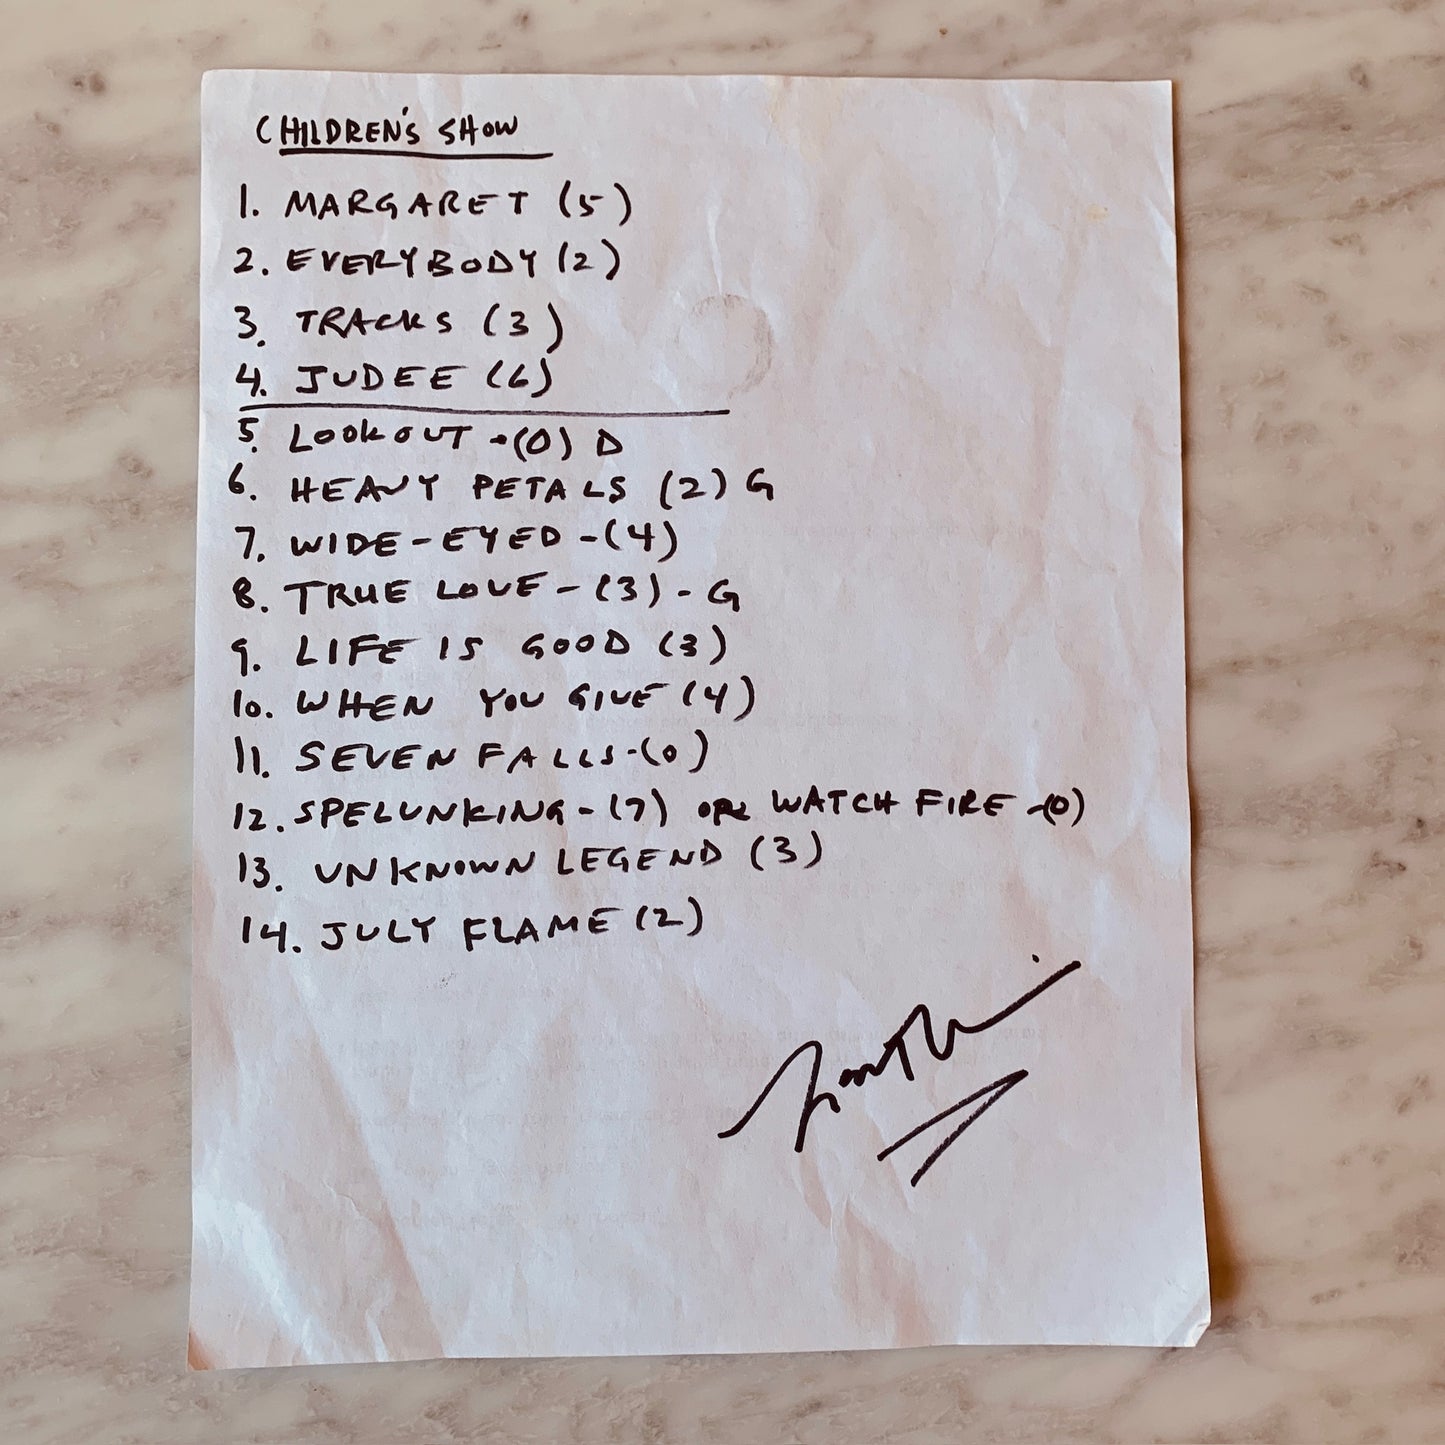 CHILDREN'S SHOW
1. MARGARET (5)
2. EVERYBODY (2)
3. TRACKS (3)
4. JUDEE (6)
5. LOOKOUT - (0) D
6. HEAVY PETALS (2) G
7. WIDE-EYED - (4)
8. TRUE LOVE - (3) - G
9. LIFE IS GOOD (3)
10. WHEN YOU GIVE (4)
11. SEVEN FALLS - (0)
12. SPELUNKING - (7) OR WATCH FIRE - (0)
13. UNKNOWN LEGEND (3)
14. JULY FLAME (2)